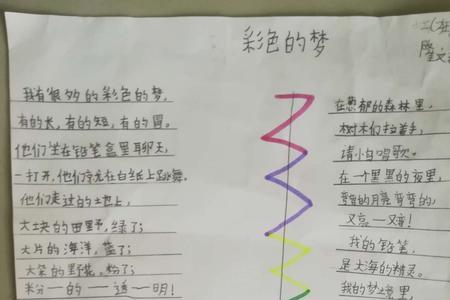 彩色的梦
我有很多的彩色的梦,
有的长,有的短,有的冒。
他们坐在铅笔盒里聊天,
一打开,他们在白纸上跳舞。
他们走过的土地上,
大块的田野,绿了;
大片的海洋,蓝了;
大朵的野花,粉了;
粉—的—透—明!
在葱郁的森林里,
树木们拉着手,
请小鸟唱歌。
在一个黑黑的夜里,
弯弯的月亮弯弯的,
我的铅笔,
是大海的精灵。
我的梦境里